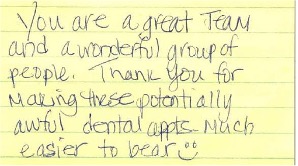 You are a great Team
and a wonderful group of
people. Thank you for
making these potentially
awful dental appts. Much
easier to bear